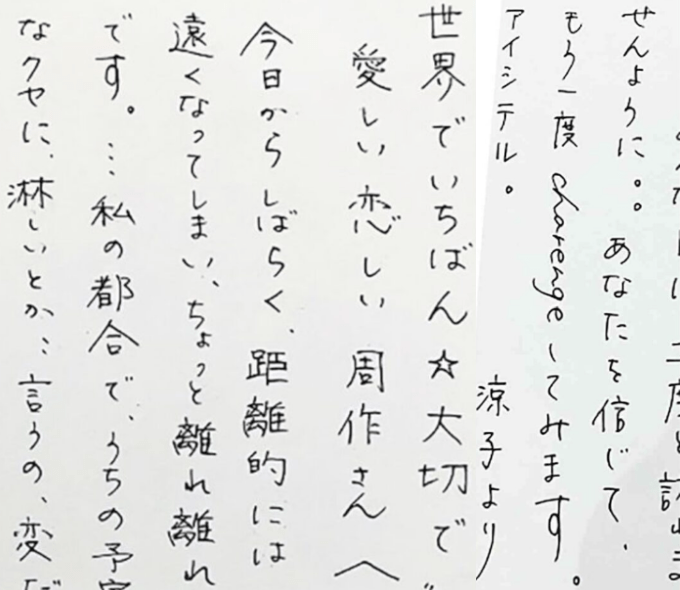 二度と
せんように。。あなたを信じて、
もう一度 charenge してみます。
アイシテル。
涼子より
世界でいちばん☆大切で
愛しい恋しい 周作さんへ
今日からしばらく、距離的には
遠くなってしまい、ちょっと離れ離れ
です。…私の都合で、うちの予定
なクセに、淋しいとか…言うの、変だ